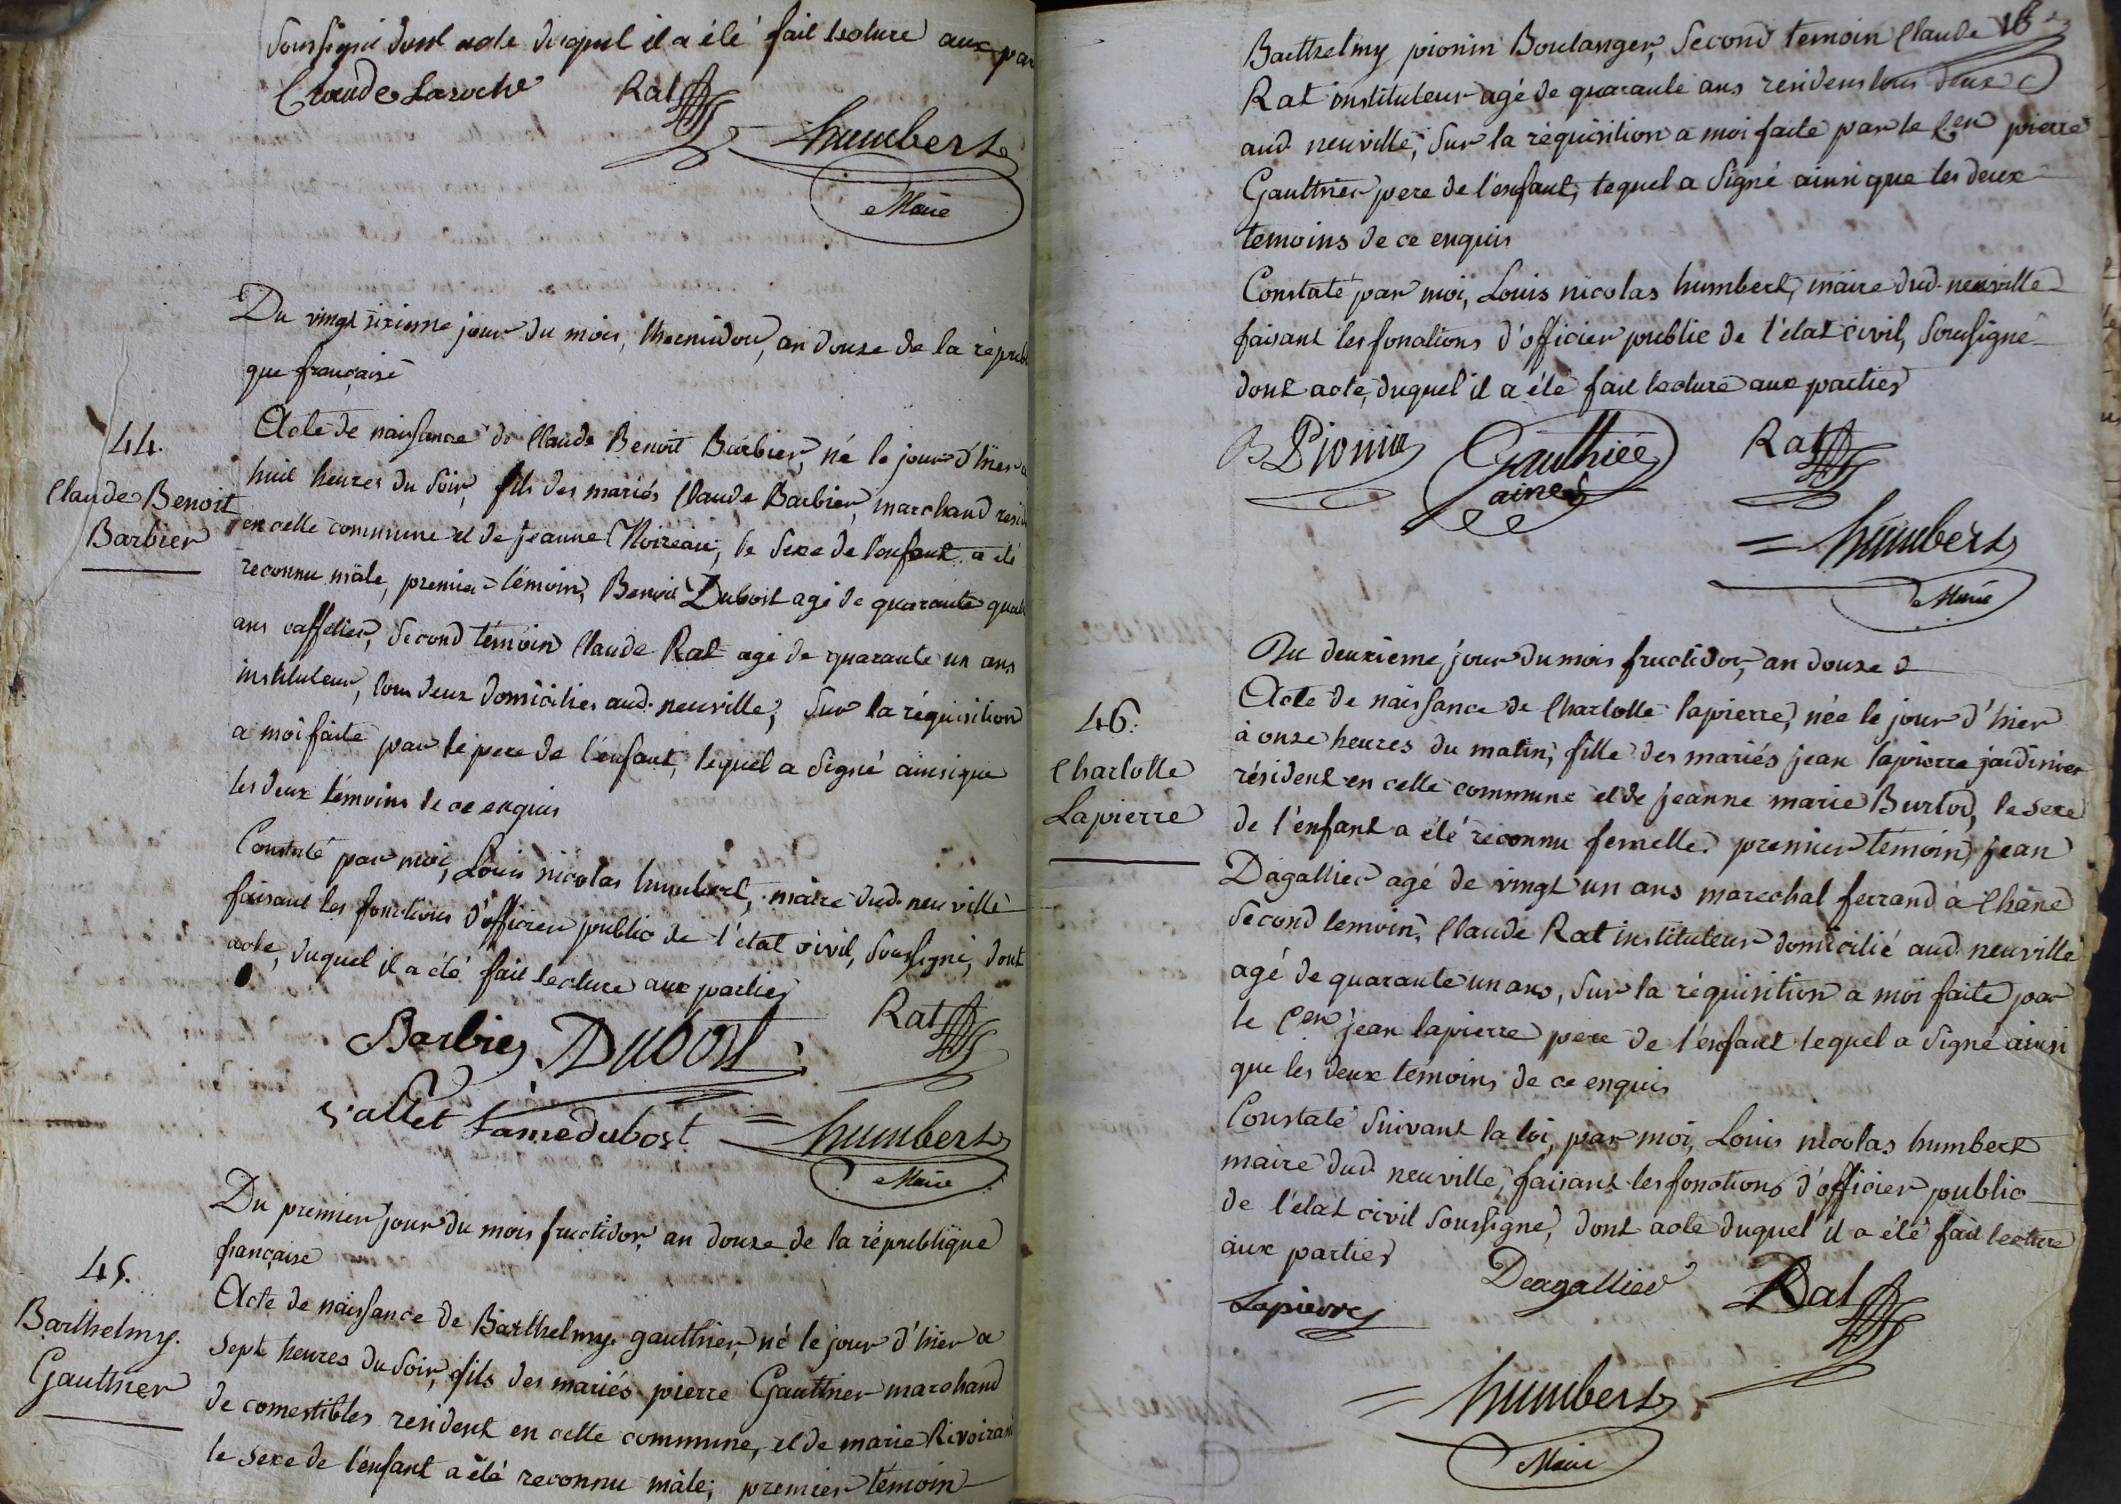 Soussigné dont acte duquel il a été fait lecture aux par
Claude Laroche Rat
humbert
Maire
Du vingt sixieme jour du mois, thermidor, an douze de la républi
que française
44.
Claude Benoit
Barbier
Acte de naissance de Claude Benoit Barbier, né le jour d'hier a
huit heures du soir, fils des mariés Claude Barbier, marchand resid
en cette commune et de jeanne Noireau, le sexe de l'enfant a été
reconnu mâle, premier témoin, Benoit Dubost agé de quarante quat
ans caffetier, second témoin Claude Rat agé de quarante un ans
instituteur, tous deux domiciliés aud. neuville, sur la réquisition
a moi faite par le pere de l'enfant, lequel a signé ainsi que
les deux témoins de ce enquis
Constaté par moi, Louis nicolas humbert, maire dud. neuville
faisant les fonctions d'officier public de l'état civil, soussigné, dont
acte, duquel il a été fait lecture aux parties
Barbier Dubost Rat
vallet famedubost humbert
Maire
Du premier jour du mois fructidor, an douze de la république
française
45.
Barthelmy.
Gauthier
Acte de naissance de Barthelmy gauthier, né le jour d'hier a
sept heures du soir, fils des mariés pierre Gauthier marchand
de comestibles resident en cette commune, et de marie Rivoirard
le sexe de l'enfant a été reconnu mâle; premier témoin
Barthelmy pionin Boulanger, second temoin Claude
Rat instituteur agé de quarante ans residens tous deux
aud. neuville, sur la réquisition a moi faite par le Cen pierre
Gauthier pere de l'enfant, lequel a signé ainsi que les deux
temoins de ce enquis
Constaté par moi, Louis nicolas humbert, maire dud. neuville
faisant les fonctions d'officier public de l'état civil, soussigné
dont acte, duquel il a été fait lecture aux parties
B Pionin Gauthier Rat
ainé
humbert
Maire
Du deuxieme jour du mois fructidor, an douze
46.
Charlotte
Lapierre
Acte de naissance de Charlotte lapierre, née le jour d'hier
à onze heures du matin, fille des mariés jean lapierre jardinier
résident en cette commune et de jeanne marie Burtod, le sexe
de l'enfant a été reconnu femelle. premier temoin, jean
Dagallier agé de vingt un ans marechal ferrand à Chãne
second temoin, Claude Rat instituteur domicilié aud. neuville
agé de quarante un ans, sur la réquisition a moi faite par
le Cen jean lapierre pere de l'enfant lequel a signé ainsi
que les deux témoins de ce enquis
Constaté suivant la loi, par moi, Louis nicolas humbert
maire dud. neuville, faisant les fonctions d'officier public
de l'état civil soussigné, dont acte duquel il a été fait lecture
aux parties
Lapierre Deagallier Rat
humbert
Maire